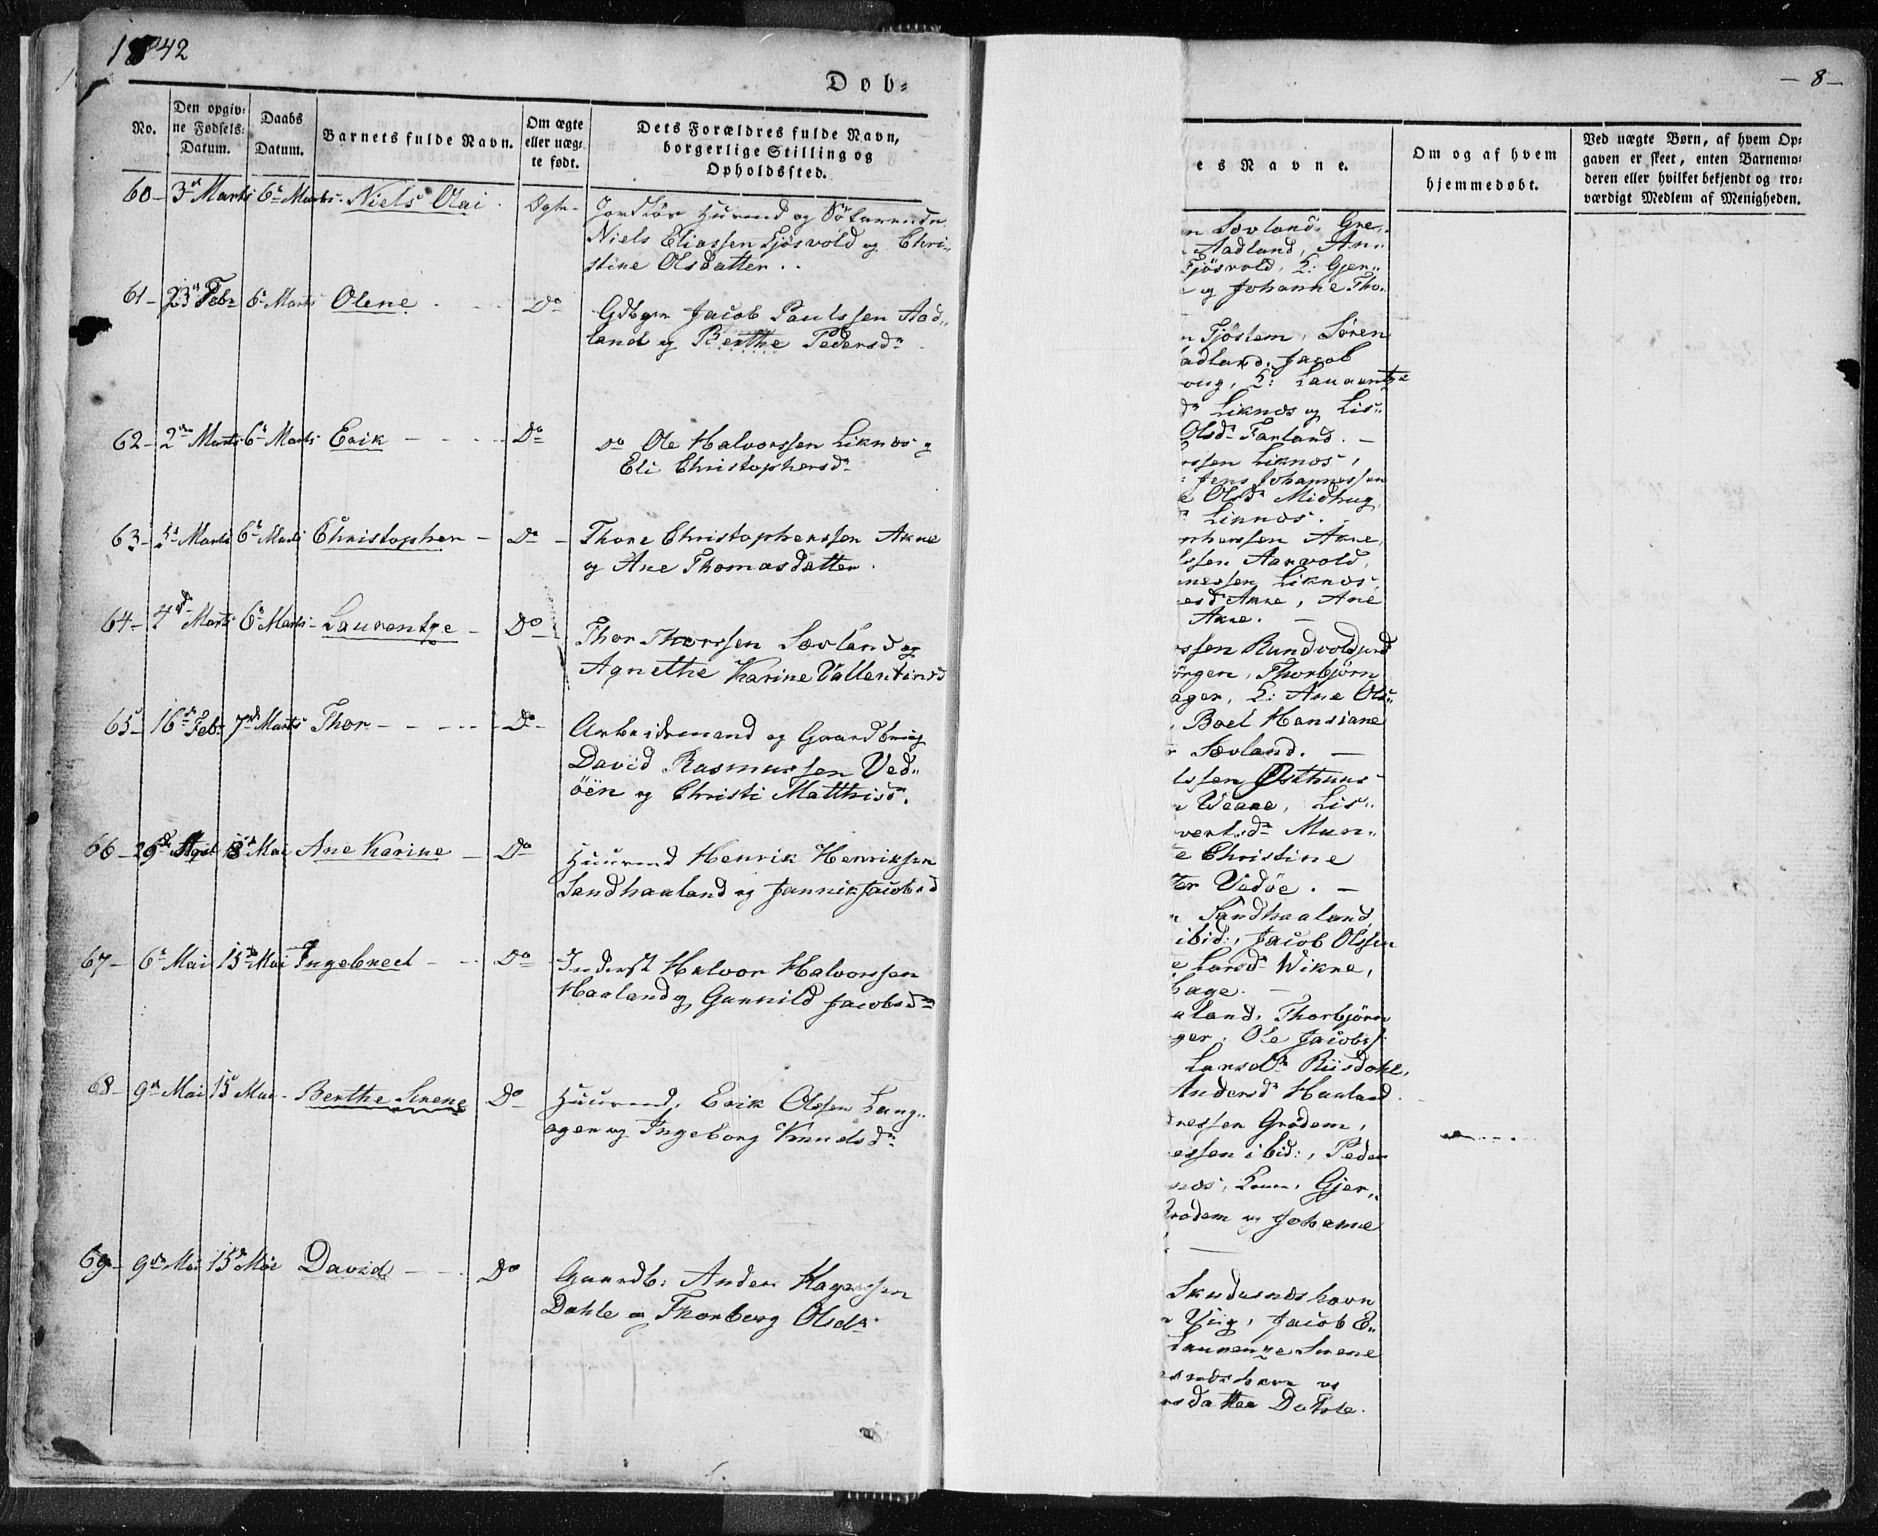 1842
Dob-
No.
Den opgiv-
ne Fødsels-
Datum.
Daabs
Datum.
Barnets fulde Navn.
Om ægte
eller uæg-
te født.
Dets Forældres fulde Navn,
borgerlige Stilling og
Opholdssted.
60 - 3die Marts 6te Marts - Niels Olai - Ægte -
Niels Eliassen Tjøsvold og Chri-
stine Olsdatter . .
61 - 23de Febr 6te Marts Olene - Do
Gdbgr Jacob Paulssen Aad-
land og Berthe Pedersdr
62 - 2den Marts 6te Marts Erik - Do
do Ole Halvorssen Liknes og
Eli Christophersdr
63 - Marts 6te Marts Christopher - Do -
Thore Christopherssen Akre
og Ane Thomasdatter.
64 - Marts 6te Marts - Laurentze - Do -
Thor Thorssen Sævland og
Agnethe Karine Vallentinsd
65 - 16de Febr 7de Marts Thor - Do -
Arbeidsmand og Gaardbrug
David Rasmussen Ved-
öen og Christi Matthisd.
66 - 26de April 8de Mai Ane Karine - Do
Huusmd Henrik Henriksen
Sandhaaland og Jannik Jacobsd
67 - 6te Mai 15de Mai Ingebrect - Do -
Inderst Halvor Halvorssen
Haaland og Gunnild Jacobsdr
68 - 9de Mai 15de Mai - Berthe Serene Do
Huusmd, Erik Olssen Lang-
ager og Ingeborg Knudsdr
69 - 9de Mai 15de Mai David - Do
Gaardb: Anders
Dahle og Thorberg Olsdr
- 8 -
es Navne.
Om og af hvem
hjemmedøbt.
Ved uægte Børn, af hvem Op-
gaven er skeet, enten Barnemo-
deren eller hvilket bekjendt og tro-
værdigt Medlem af Menigheden.
n Sævland, Gre-
Aadland, An-
Tjösvold, Q: Gjer-
og Johanne Tho-
n Tjöstem, Sören
adland, Jacob
oug, Q: Laurentze
dr Liknes og Lis-
Olsdr Farland. -
rssen Liknes,
: Jens Johannessen
e Olsdr Midhug
Liknes.
pherssen Akre,
lssen Aarvold,
nessen Liknes,
esdr Akre, Ane
Akre. -
ssen Rundvoldsrd
örgen, Thorbjörn
ager, Q: Ane Ols-
, Boel Hansiane
r Sævland. -
lssen Østhuus
n Weare, Lis-
vertsdr Mun-
e Christine
ter Vedöe. -
n Sandhaaland,
ibid:, Jacob Olssen
e Larsdr Wikre,
hage. -
aland, Thorbjörn
ger, Ole Jacobss
Larsdtr Riisdahl,
Andersdr Haaland
dressen Grödem,
essen ibid:, Peder
nes, Gjer-
Grödem og Johanne
Skudesneshavn
n Viig, Jacob E-
Laurenze Serene
esneshavn og
rsdatter Dahle.